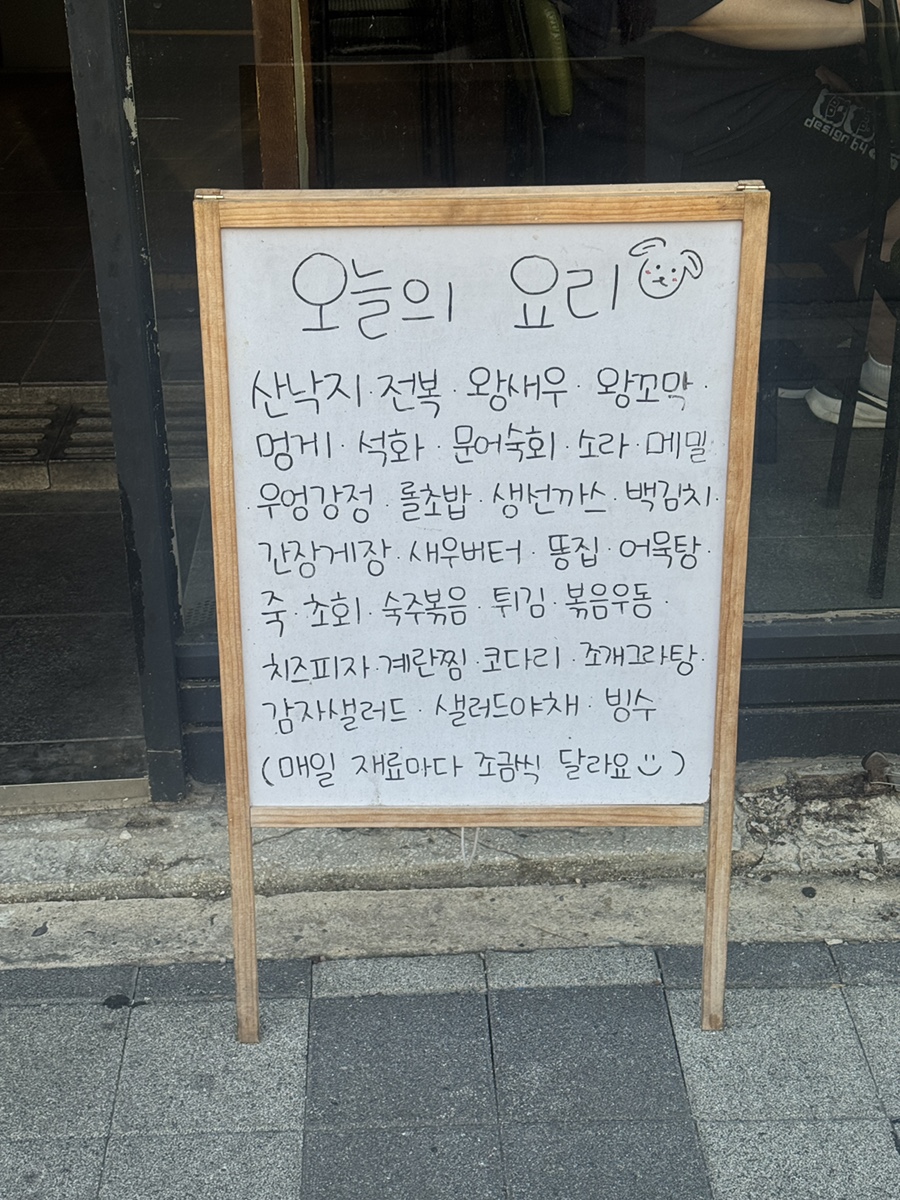 오늘의 요리
산낙지·전복·왕새우·왕꼬막·
멍게·석화·문어숙회·소라·메밀·
·우엉강정·롤초밥·생선까스·백김치·
간장게장·새우버터·똥집·어묵탕·
죽·초회·숙주볶음·튀김·볶음우동·
치즈피자·계란찜·코다리·조개그라탕·
감자샐러드·샐러드야채·빙수
(매일 재료마다 조금씩 달라요)
design by